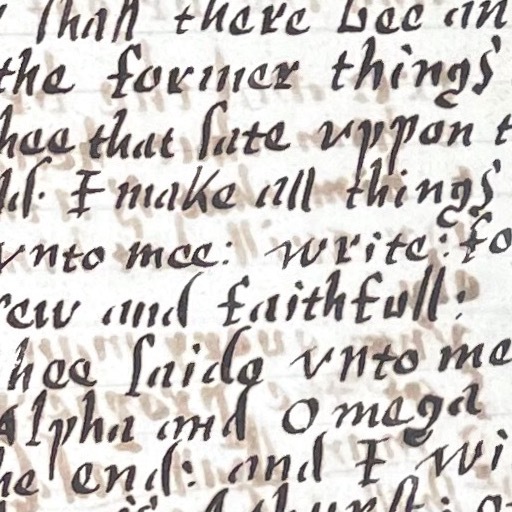 shall there bee an
the former things
hee that sate vppon t
I make all things
vnto mee: write: fo
rew and faithfull:
hee saide vnto me
Alpha and Omega
he end: and I wi
is A thurst: